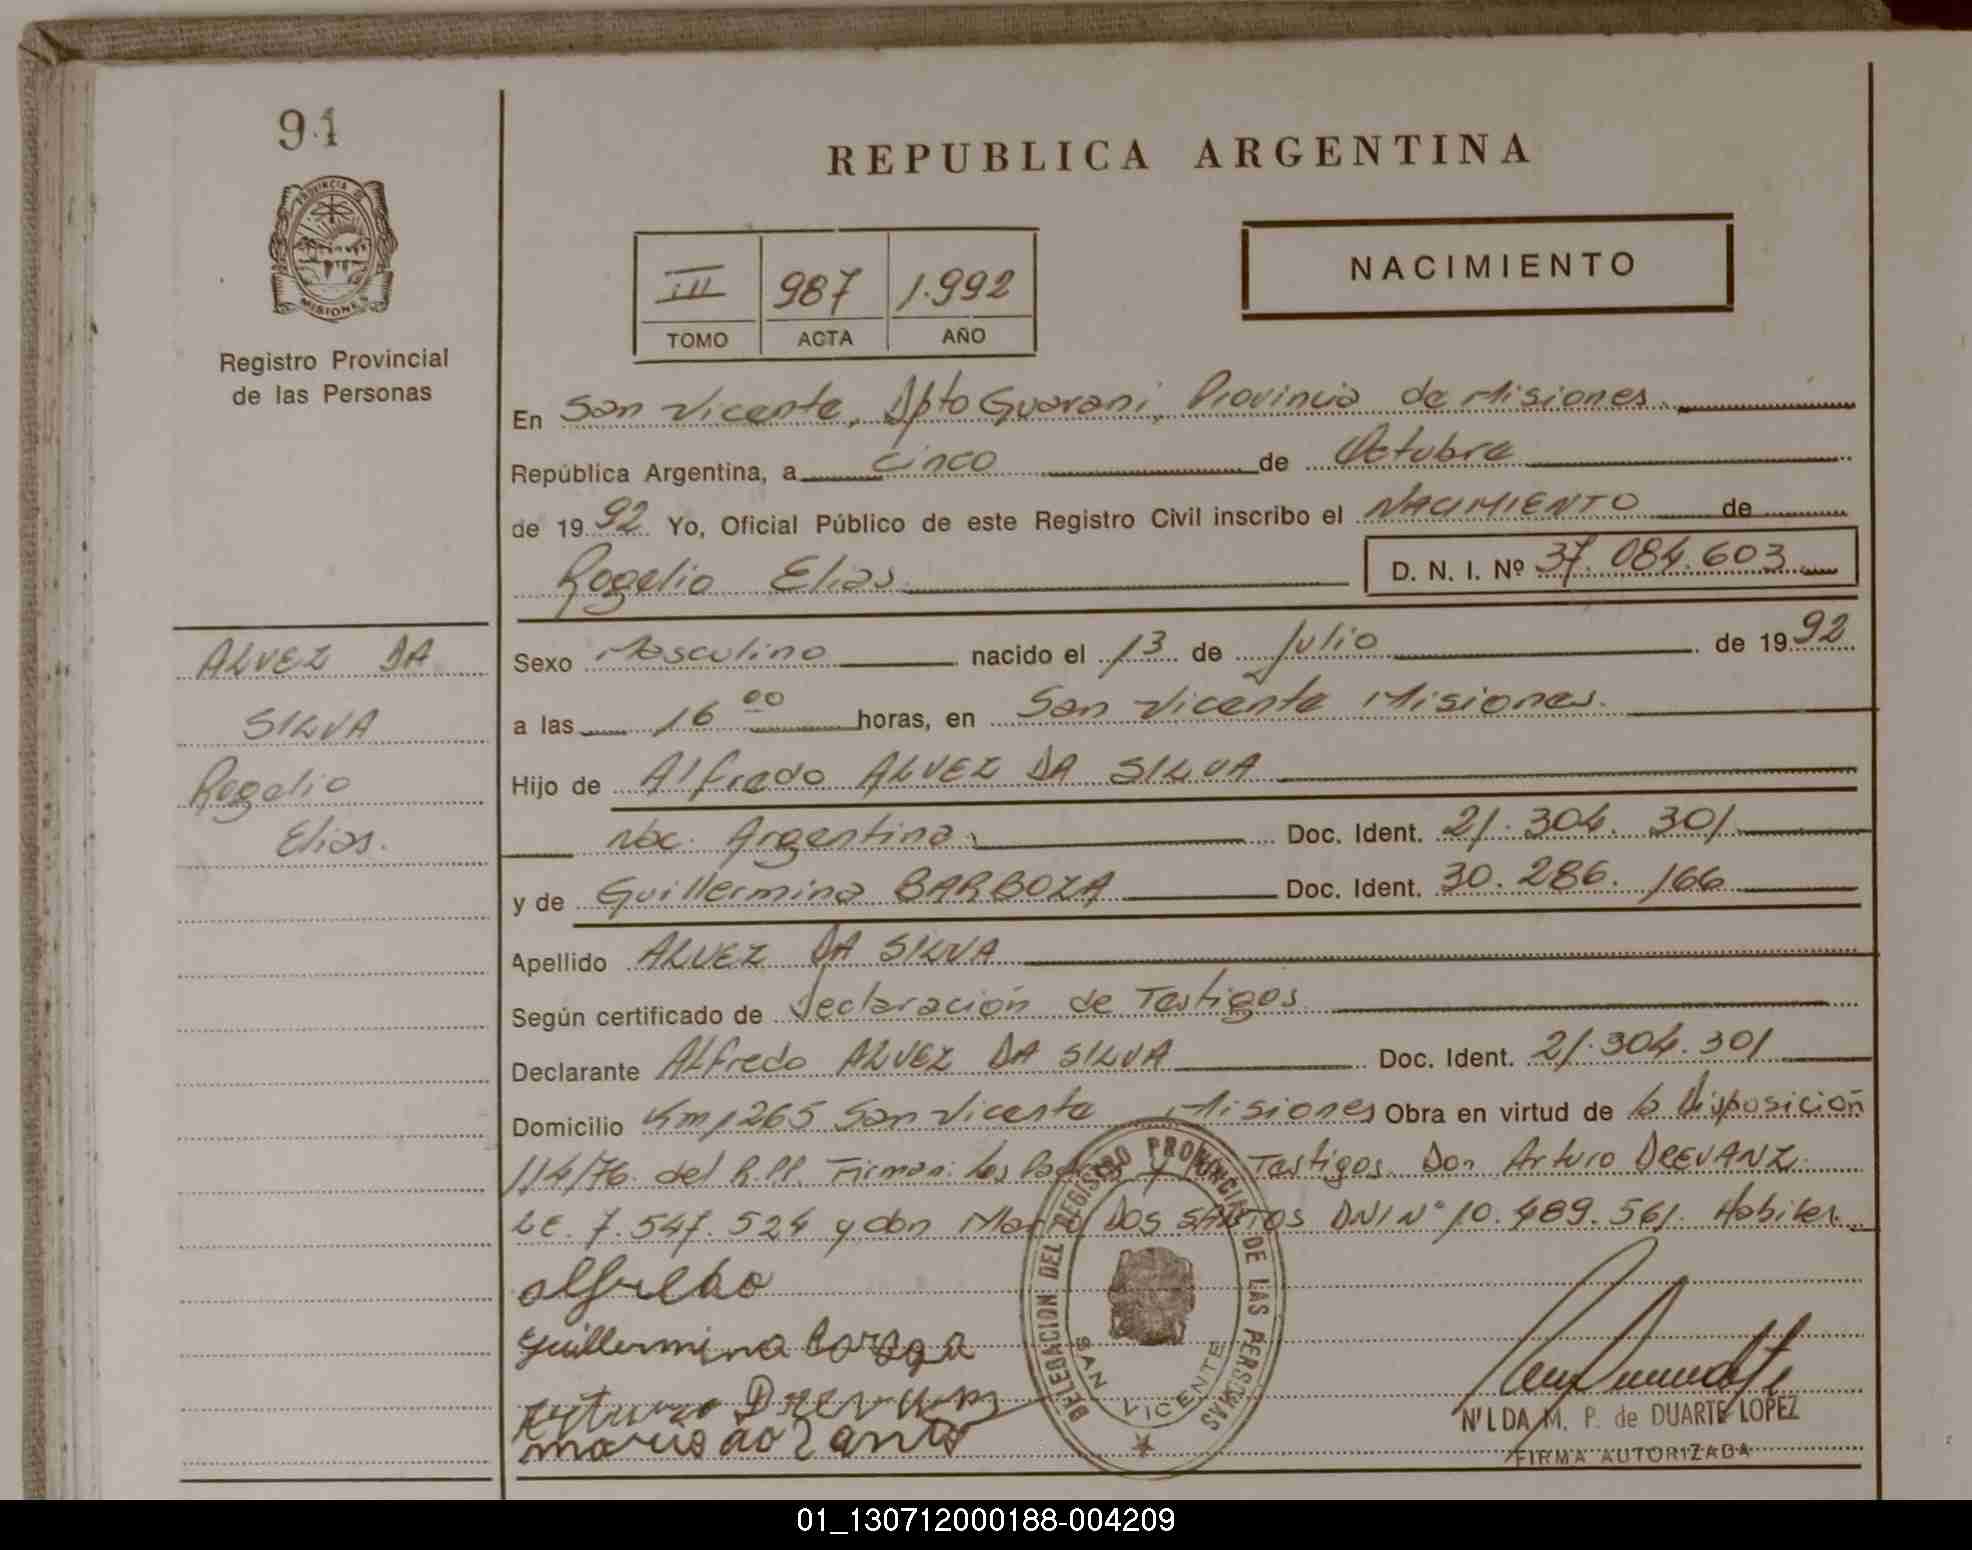 91
PROVINCIA DE
MISIONES
Registro Provincial
de las Personas
ALVEZ DA
SILVA
Rogelio
Elias.
REPUBLICA ARGENTINA
III 987 1.992
TOMO ACTA AÑO
NACIMIENTO
En San Vicente, Dpto Guarani, Provincia de Misiones.
República Argentina, a cinco de Octubre
de 1992 Yo, Oficial Público de este Registro Civil inscribo el NACIMIENTO de
Rogelio Elias. D. N. I. Nº 37.084.603
Sexo Masculino nacido el 13 de Julio de 1992
a las 16 00 horas, en San Vicente Misiones.
Hijo de Alfredo ALVEZ DA SILVA
Nac. Argentina. Doc. Ident. 21.304.301
y de Guillermina BARBOZA Doc. Ident. 30.286.166
Apellido ALVEZ DA SILVA
Según certificado de Declaración de Testigos
Declarante Alfredo ALVEZ DA SILVA Doc. Ident. 21.304.301
Domicilio Km, 1265 San Vicente Misiones Obra en virtud de la Disposición
114/76. del R.PP. Firman: los Padres y los Testigos Don Arturo DREVANZ.
LE. 7.547.524 y don Mario DOS SANTOS DNI Nº 10.489.561. Habiles.
alfredo
guillermina
DELEGACION DEL REGISTRO PROVINCIAL DE LAS PERSONAS
SAN VICENTE
NILDA M. P. de DUARTE LOPEZ
FIRMA AUTORIZADA
01_130712000188-004209